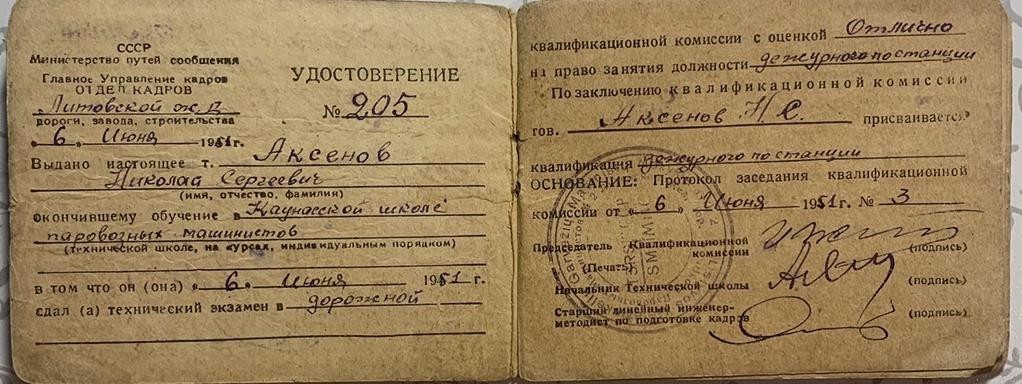 СССР
Министерство путей сообщения
Главное Управление кадров
ОТДЕЛ КАДРОВ
Литовской ж.д
дороги, завода, строительства
„6„ Июня 1951г.
УДОСТОВЕРЕНИЕ
№ 205
Выдано настоящее т. Аксенов
Николай Сергеевич
(имя, отчество, фамилия)
окончившему обучение в Каунасской школе
паровозных машинистов
(технической школе, на курсах, индивидуальным порядком)
в том что он (она) „6„ Июня 1951 г.
сдал (а) технический экзамен в дорожной
квалификационной комиссии с оценкой Отлично
на право занятия должности дежурного по станции
По заключению квалификационной комиссии
тов. Аксенов Н.С. присваивается
квалификация дежурного по станции
ОСНОВАНИЕ: Протокол заседания квалификационной
комиссии от „6„ Июня 1951г. № 3
Председатель Квалификационной
комиссии (подпись)
(Печать)
Начальник Технической школы (подпись)
Старший линейный инженер-
методист по подготовке кадров (подпись)